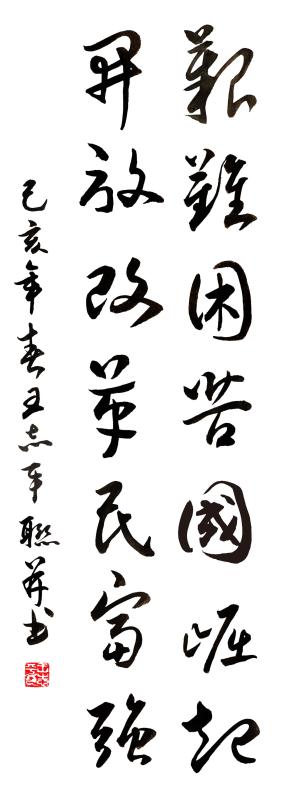 艱難困苦國崛起
開放改革民富強
己亥年春王志平聯并书